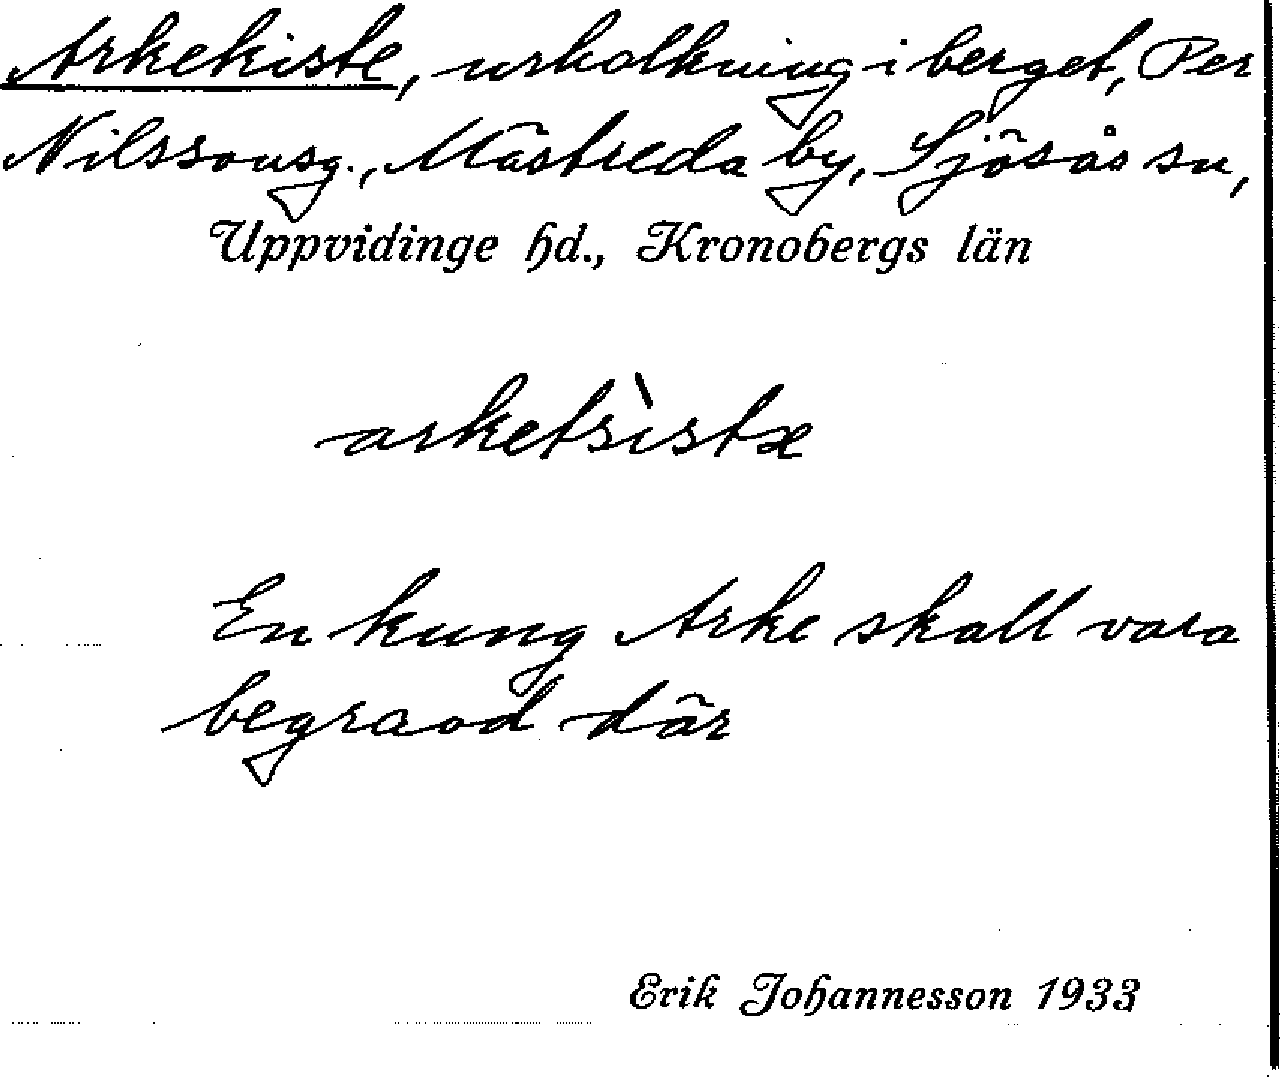 Arkekiste, urholkning i berget, Per
Nilssonsg., Mästreda by, Sjösås sn,
Uppvidinge hd., Kronobergs län
arketsìstæ
En kung Arke skall vara
begravd där
Erik Johannesson 1933